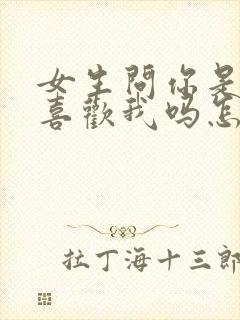 女生問你是
喜歡我吗怎
拉丁海十三郎